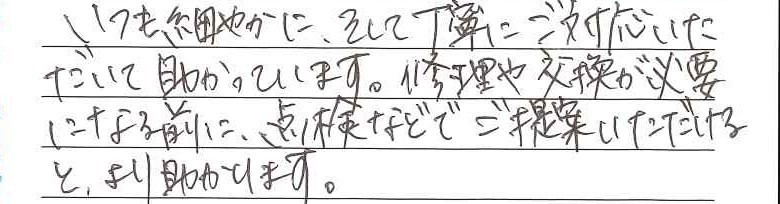 いつも細やかに、そして丁寧にご対応いた
だいて助かっています。修理や交換が必要
になる前に、点検などでご提案いただける
と、より助かります。